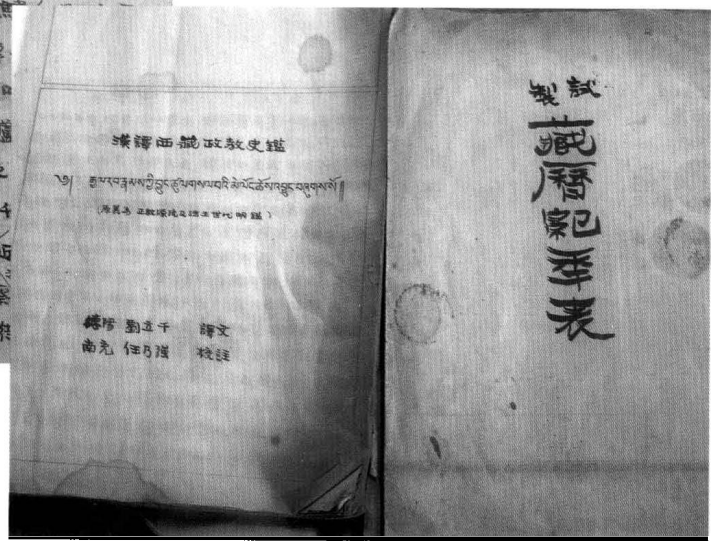 漢譯西藏政教史鑑
༄། རྒྱལ་རབ་རྣམས་ཀྱི་བྱུང་ཚུལ་གསལ་བའི་མེ་ལོང་ཆོས་འབྱུང་བཞུགས་སོ༎
(原義為 正教源流及諸王世代明鑑)
劉立千 譯文
南充 任乃强 校註
試製
藏曆紀年表